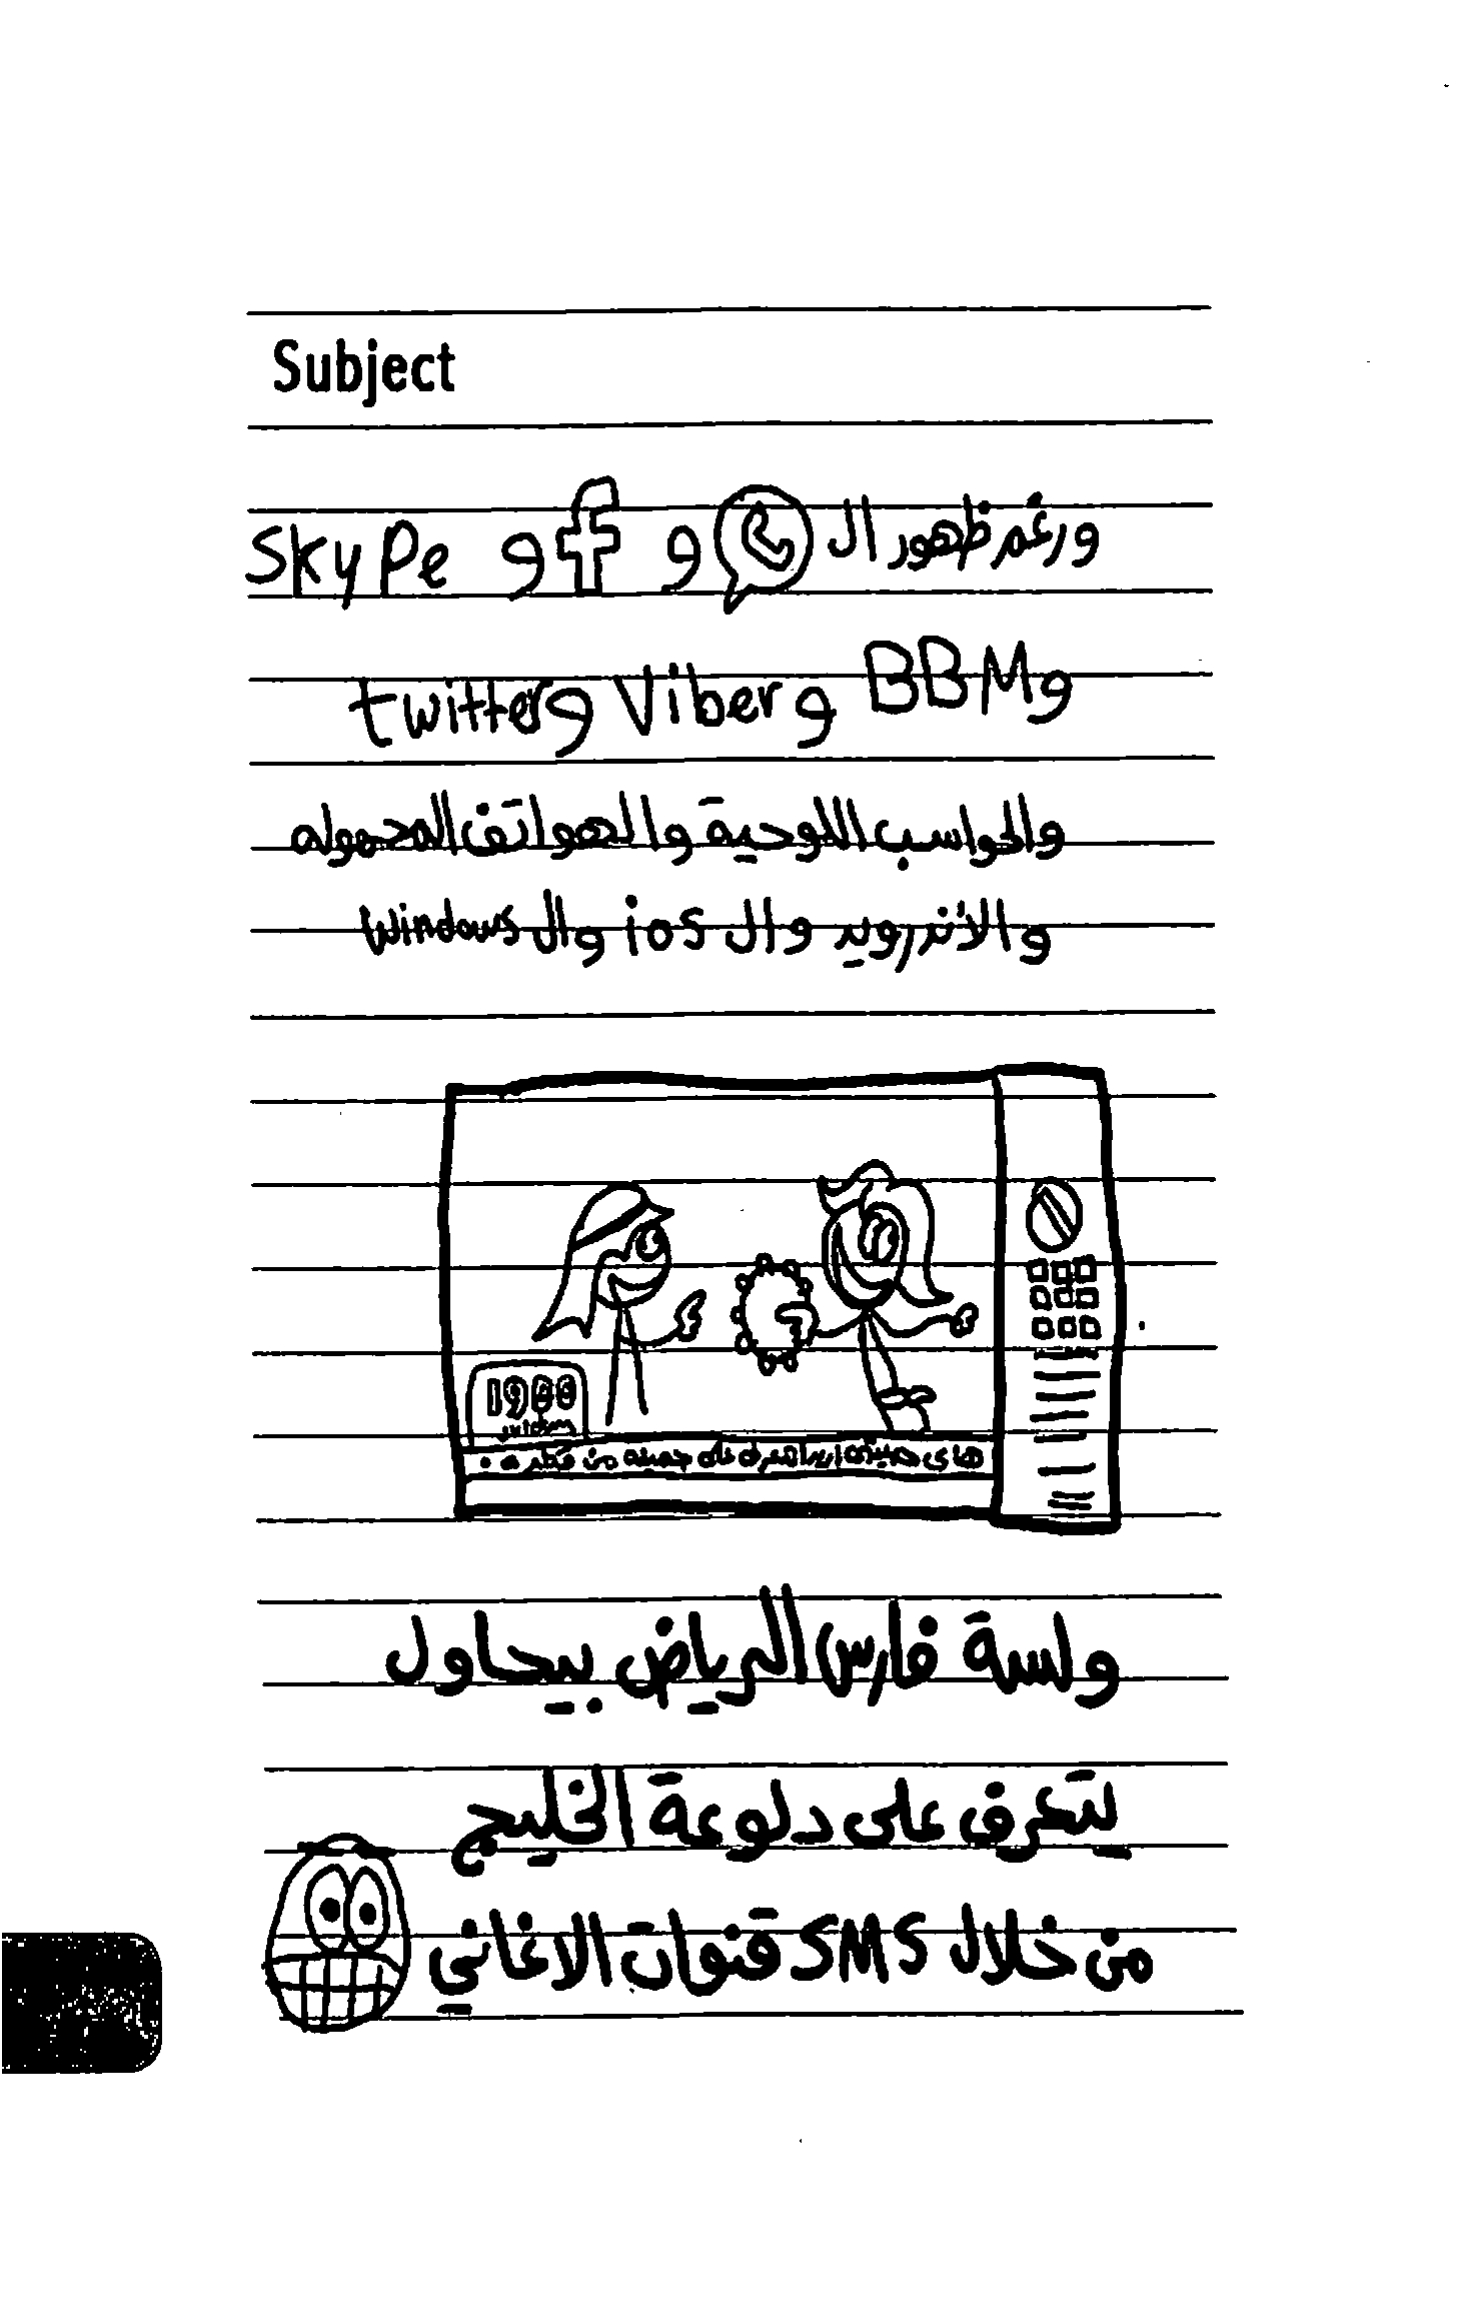 Subject
ورغم ظهور ال و و Skype
و BBM و Viber و twitter
والحواسب اللوحية والهواتف المحموله
والأندرويد وال ios وال windows
1900
هاي اريد اتعرف على جميله من قطر
ولسة فارس الرياض بيحاول
يتعرف على دلوعة الخليج
من خلال SMS قنوات الاغاني